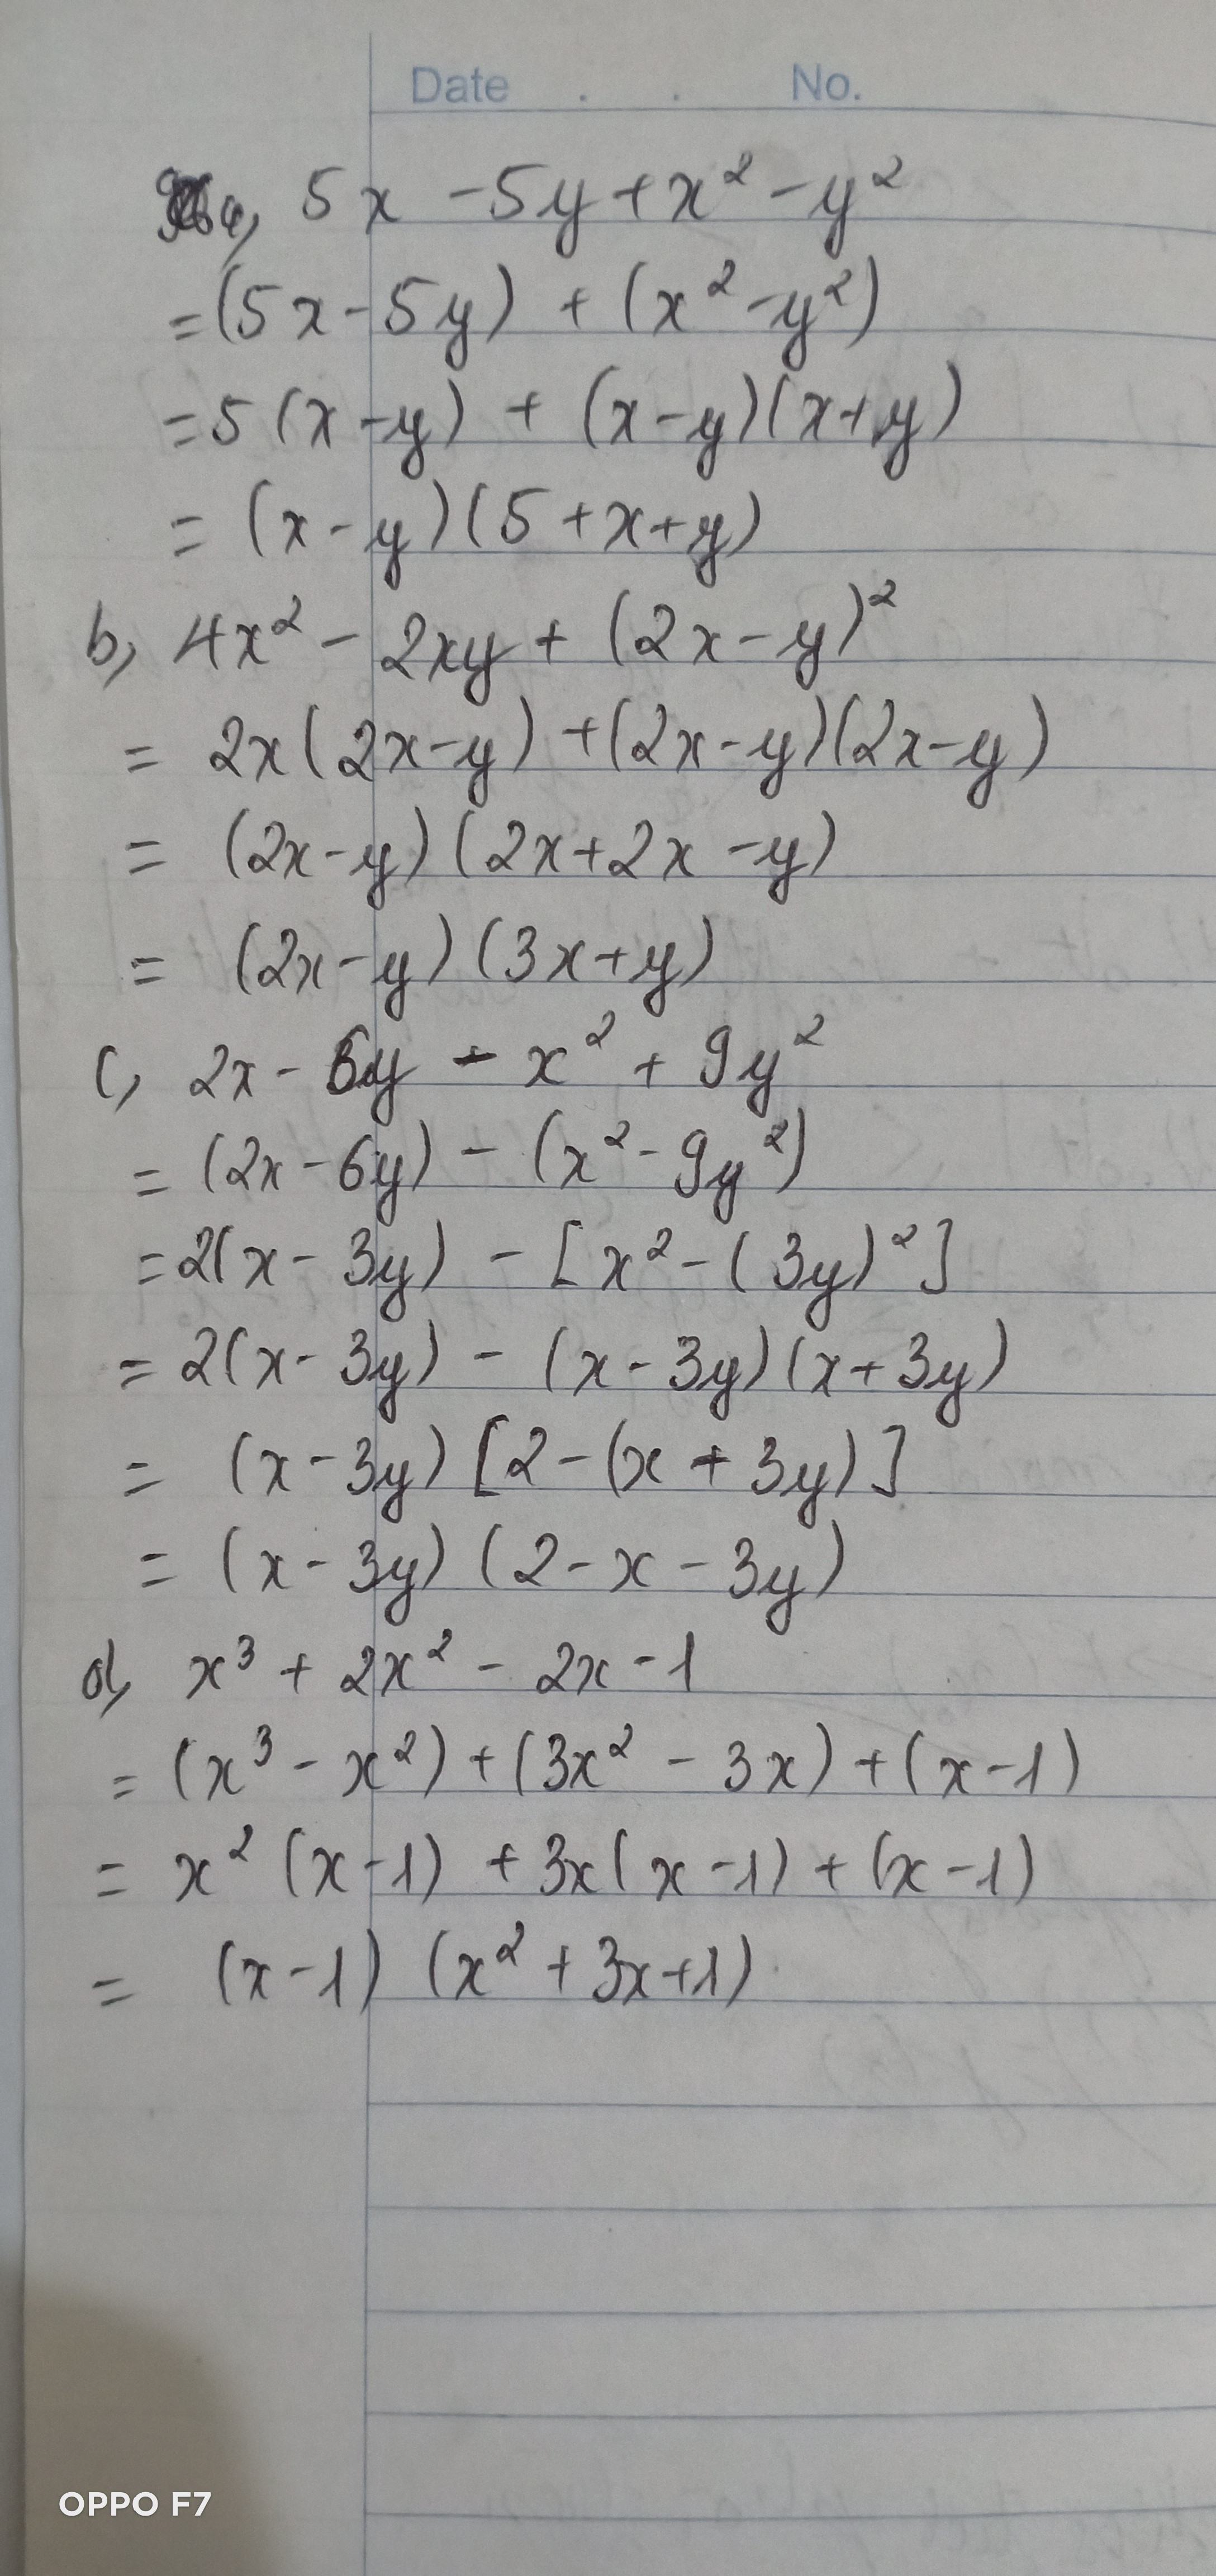 Date . . No.
a, 5x - 5y + x² - y²
= (5x - 5y) + (x² - y²)
= 5(x - y) + (x - y)(x + y)
= (x - y)(5 + x + y)
b, 4x² - 2xy + (2x - y)²
= 2x(2x - y) + (2x - y)(2x - y)
= (2x - y)(2x + 2x - y)
= (2x - y)(3x + y)
c, 2x - 6y - x² + 9y²
= (2x - 6y) - (x² - 9y²)
= 2(x - 3y) - [x² - (3y)²]
= 2(x - 3y) - (x - 3y)(x + 3y)
= (x - 3y)[2 - (x + 3y)]
= (x - 3y)(2 - x - 3y)
d, x³ + 2x² - 2x - 1
= (x³ - x²) + (3x² - 3x) + (x - 1)
= x²(x - 1) + 3x(x - 1) + (x - 1)
= (x - 1)(x² + 3x + 1)
OPPO F7